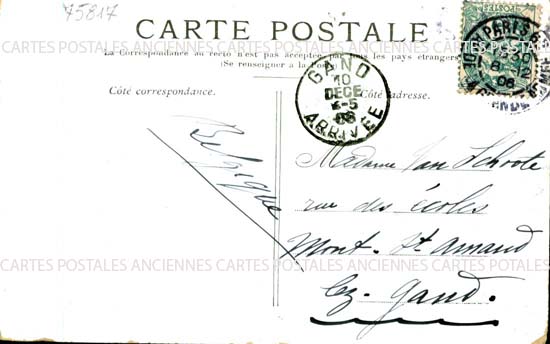 75817
CARTE POSTALE
La Correspondance au recto n'est pas acceptée par tous les pays étrangers
(Se renseigner à la Poste)
Côté correspondance.
Côté adresse.
GAND
10
DECE
4-5
06
ARRIVÉE
PARIS
8-12
06
Belgique
Madame Van Schoote
rue des écoles
Mont-St Amand
Lez-Gand.
CARTES POSTALES ANCIENNES CARTES POSTALES ANCIENNES CARTES POTALES
CARTES POSTALES ANCIENNES CARTES POSTALES ANCIENNES CARTES POTALES